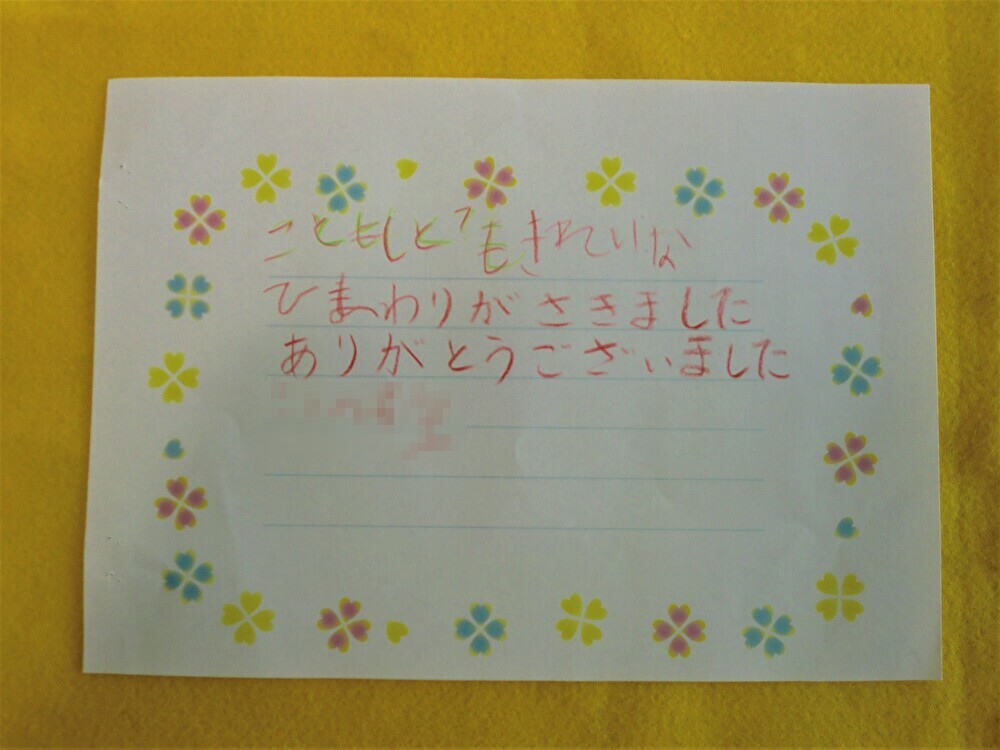 こともしとてもきれいな
ひまわりがさきました
ありがとうございました